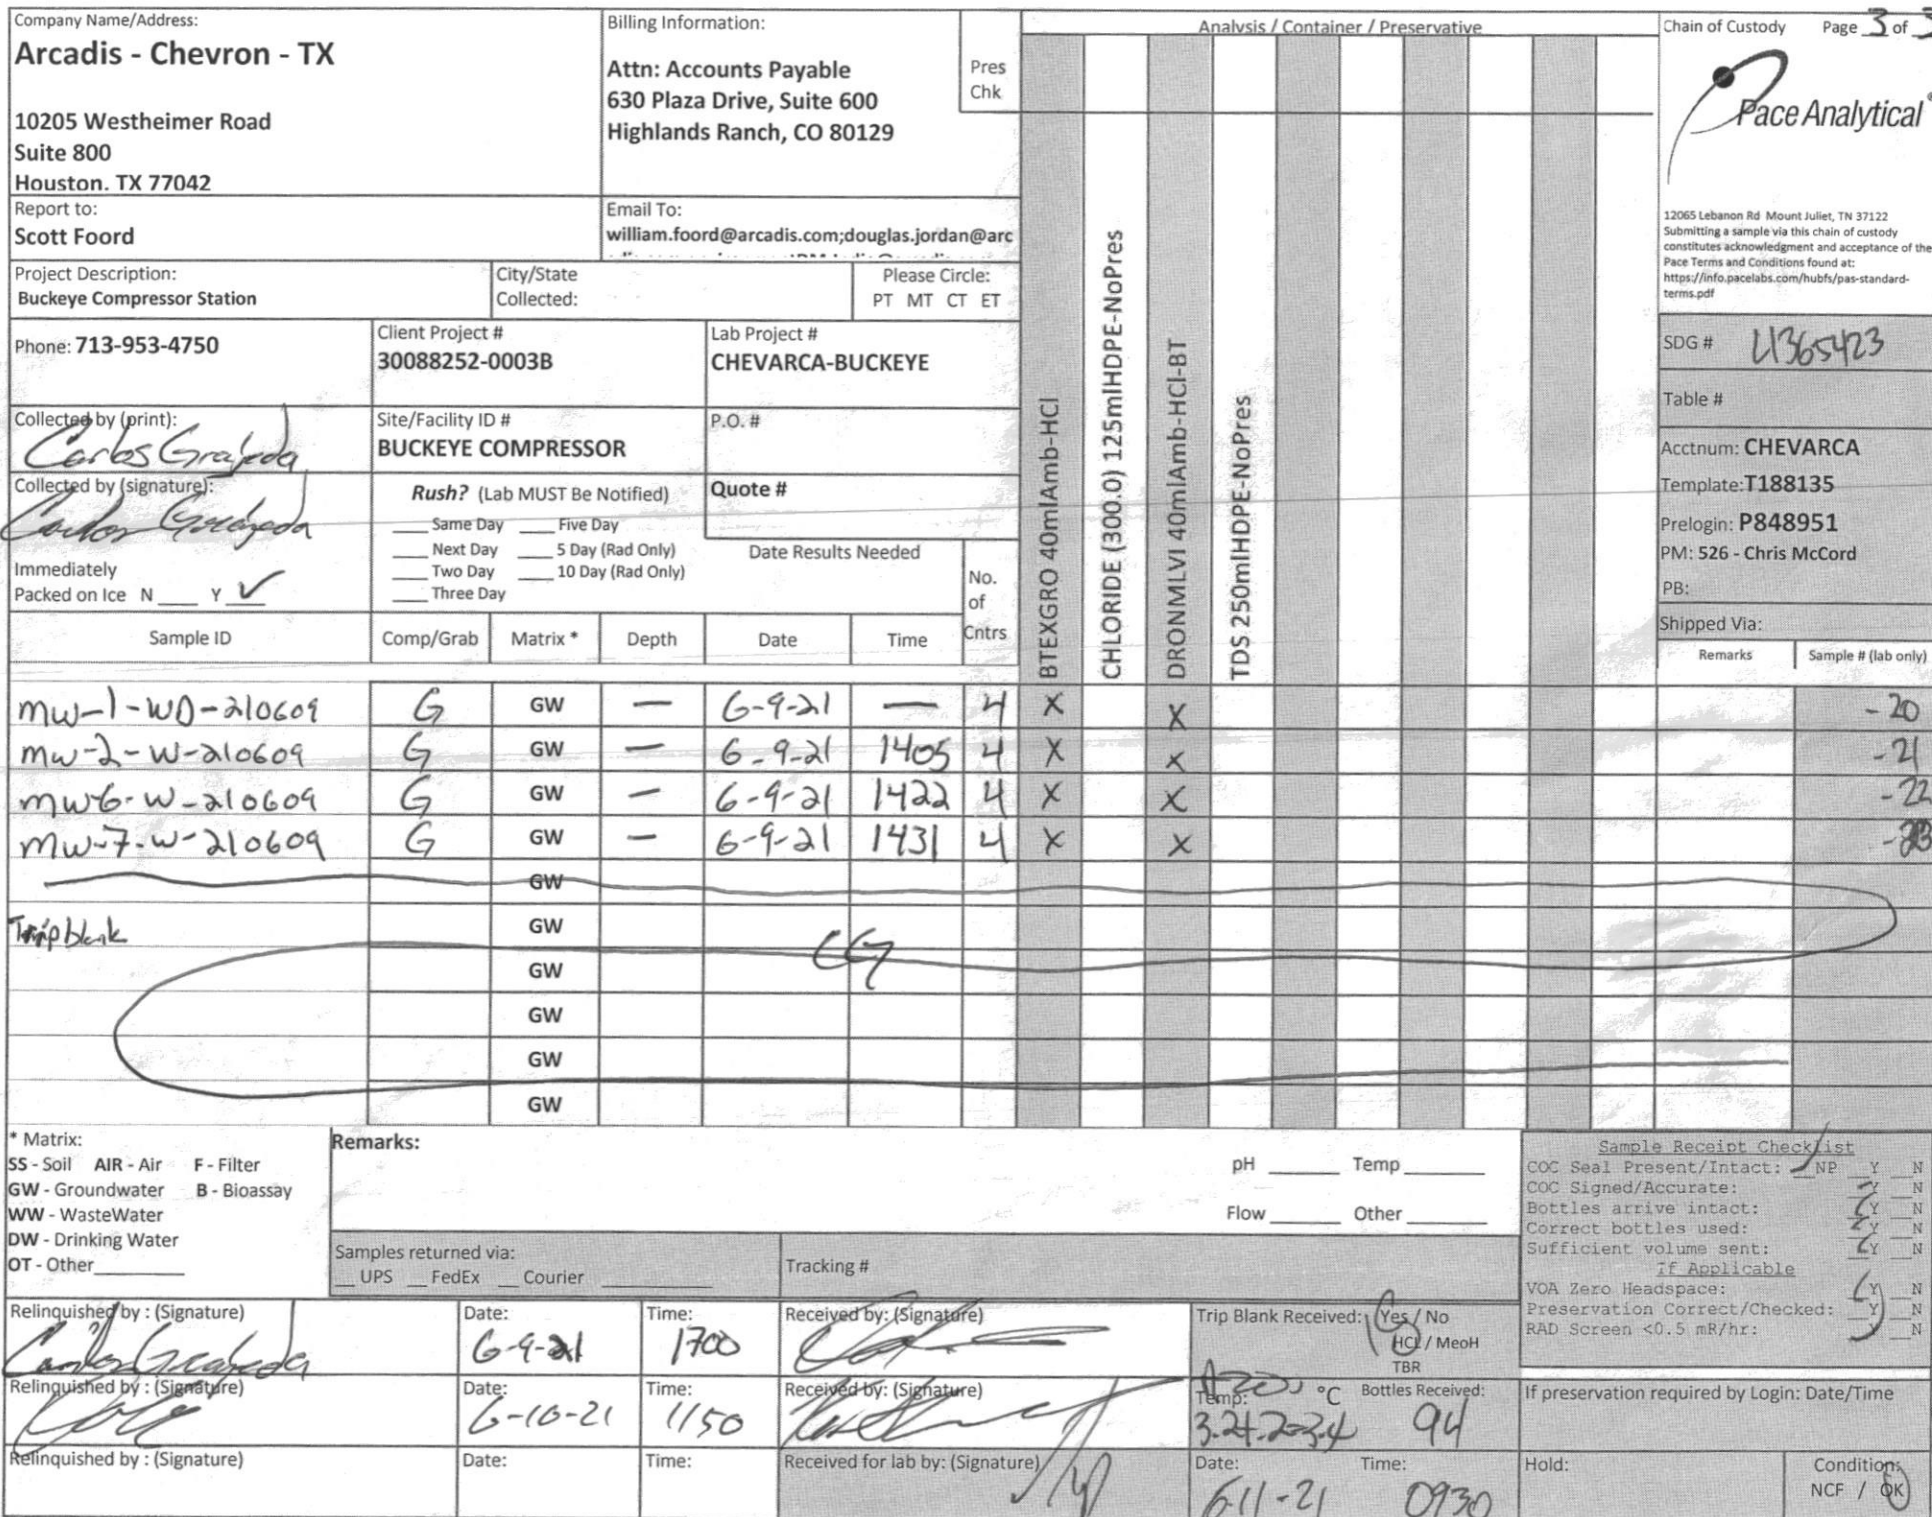 Company Name/Address:
Arcadis - Chevron - TX
10205 Westheimer Road
Suite 800
Houston. TX 77042
Billing Information:
Attn: Accounts Payable
630 Plaza Drive, Suite 600
Highlands Ranch, CO 80129
Pres
Chk
Analysis / Container / Preservative
Chain of Custody Page 3 of 3
Pace Analytical
12065 Lebanon Rd Mount Juliet, TN 37122
Submitting a sample via this chain of custody
constitutes acknowledgment and acceptance of the
Pace Terms and Conditions found at:
https://info.pacelabs.com/hubfs/pas-standard-
terms.pdf
Report to:
Scott Foord
Email To:
william.foord@arcadis.com;douglas.jordan@arc
Project Description:
Buckeye Compressor Station
City/State
Collected:
Please Circle:
PT MT CT ET
Phone: 713-953-4750
Client Project #
30088252-0003B
Lab Project #
CHEVARCA-BUCKEYE
SDG # L1365423
Table #
Collected by (print):
Carlos Grajeda
Site/Facility ID #
BUCKEYE COMPRESSOR
P.O. #
Acctnum: CHEVARCA
Template: T188135
Prelogin: P848951
PM: 526 - Chris McCord
PB:
Shipped Via:
Collected by (signature):
Carlos Grajeda
Rush? (Lab MUST Be Notified)
___ Same Day ___ Five Day
___ Next Day ___ 5 Day (Rad Only)
___ Two Day ___ 10 Day (Rad Only)
___ Three Day
Quote #
Date Results Needed
Immediately
Packed on Ice N ___ Y ✓
No.
of
Cntrs
BTEXGRO 40mlAmb-HCl
CHLORIDE (300.0) 125mlHDPE-NoPres
DRONMLVI 40mlAmb-HCl-BT
TDS 250mlHDPE-NoPres
Sample ID Comp/Grab Matrix * Depth Date Time Remarks Sample # (lab only)
MW-1-WD-210609 G GW — 6-9-21 — 4 X X -20
MW-2-W-210609 G GW — 6-9-21 1405 4 X X -21
MW-6-W-210609 G GW — 6-9-21 1422 4 X X -22
MW-7-W-210609 G GW — 6-9-21 1431 4 X X -23
GW
Trip blank GW
CG
GW
GW
GW
GW
* Matrix:
SS - Soil AIR - Air F - Filter
GW - Groundwater B - Bioassay
WW - WasteWater
DW - Drinking Water
OT - Other
Remarks:
pH ___ Temp ___
Flow ___ Other ___
Samples returned via:
__ UPS __ FedEx __ Courier
Tracking #
Sample Receipt Checklist
COC Seal Present/Intact: NP Y N
COC Signed/Accurate: Y N
Bottles arrive intact: Y N
Correct bottles used: Y N
Sufficient volume sent: Y N
If Applicable
VOA Zero Headspace: Y N
Preservation Correct/Checked: Y N
RAD Screen <0.5 mR/hr: Y N
Relinquished by : (Signature)
Carlos Grajeda
Date: 6-9-21
Time: 1700
Received by: (Signature)
Trip Blank Received: Yes / No
HCL / MeoH
TBR
Relinquished by : (Signature)
Date: 6-10-21
Time: 1150
Received by: (Signature)
Temp: °C
Bottles Received: 94
If preservation required by Login: Date/Time
Relinquished by : (Signature)
Date:
Time:
Received for lab by: (Signature)
Date: 6-11-21
Time: 0930
Hold:
Condition:
NCF / OK